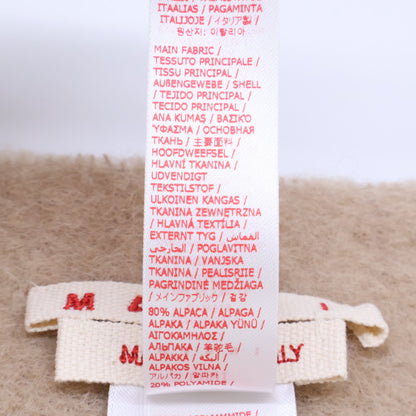 ITAALIAS / PAGAMINTA
ITALIJOJE / イタリア製 /
원산지: 이탈리아
MAIN FABRIC /
TESSUTO PRINCIPALE /
TISSU PRINCIPAL /
AUßENGEWEBE / SHELL
/ TEJIDO PRINCIPAL /
TECIDO PRINCIPAL /
ANA KUMAŞ / ΒΑΣΙΚΟ
ΎΦΑΣΜΑ / ОСНОВНАЯ
ТКАНЬ / 主要面料 /
HOOFDWEEFSEL /
HLAVNÍ TKANINA /
UDVENDIGT
TEKSTILSTOF /
ULKOINEN KANGAS /
TKANINA ZEWNĘTRZNA
/ HLAVNÁ TEXTÍLIA /
EXTERNT TYG / القماش
الخارجي / POGLAVITNA
TKANINA / VANJSKA
TKANINA / PEALISRIIE /
PAGRINDINĖ MEDŽIAGA
/ メインファブリック / 겉감
80% ALPACA / ALPAGA /
ALPAKA / ALPAKA YÜNÜ /
ΑΙΓΟΚΑΜΗΛΟΣ /
АЛЬПАКА / 羊驼毛 /
ALPAKKA / ألبكة /
ALPAKOS VILNA /
アルパカ / 알파카
20% POLYAMIDE /
M